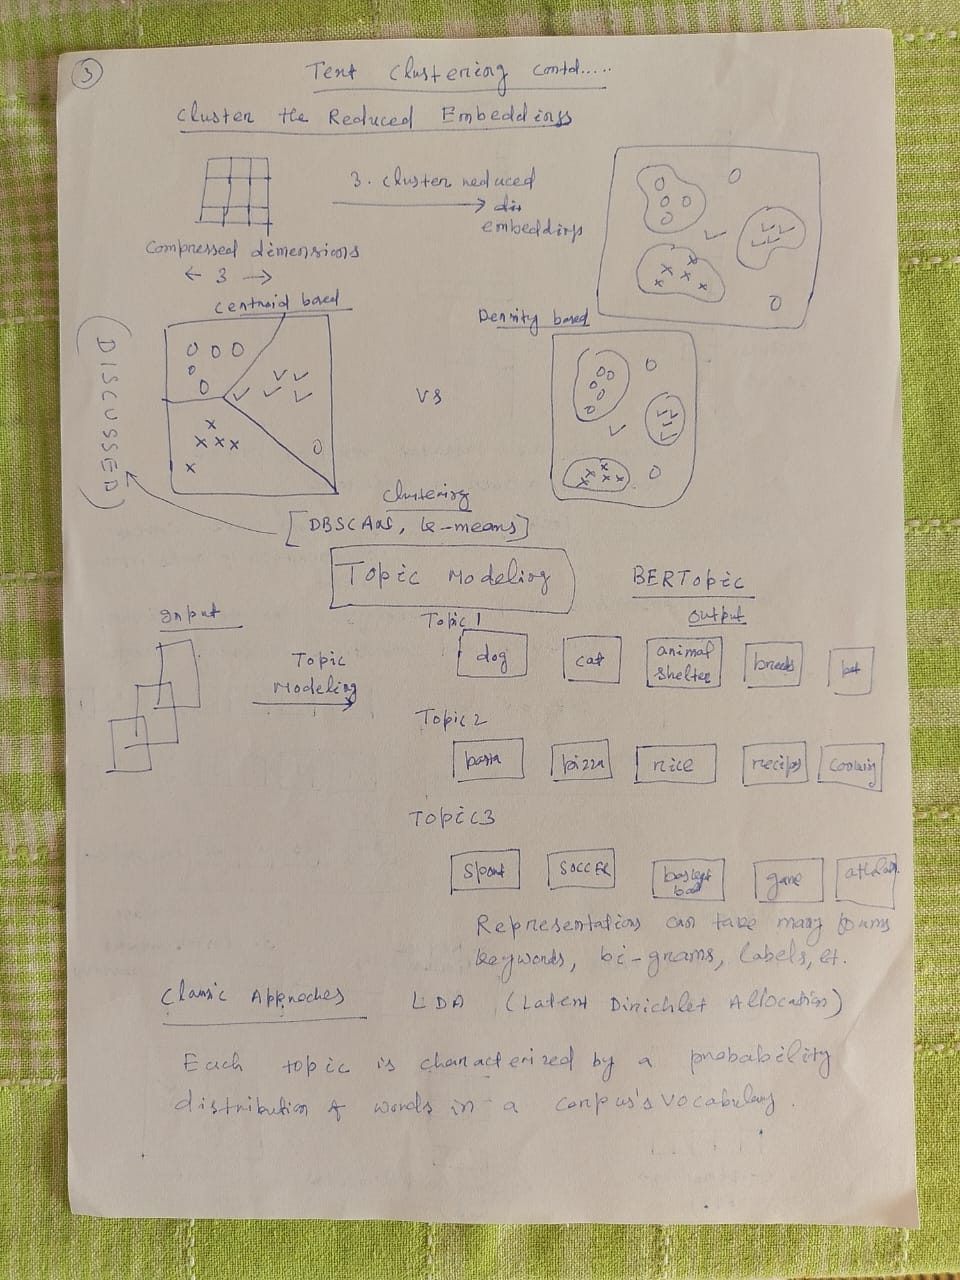 3
Text Clustering Contd.....
Cluster the Reduced Embeddings
3. cluster reduced
dim
embeddings
Compressed dimensions
← 3 →
Centroid based
Density based
DISCUSSED
vs
Clustering
[DBSCAN, k-means]
Topic Modeling
BERTopic
Input
Output
Topic Modeling
Topic 1
dog cat animal shelter breeds pet
Topic 2
pasta pizza rice recipes cooking
Topic 3
Sport SOCCER basket ball game
Representations can take many forms
keywords, bi-grams, labels, et.
Classic Approches LDA (Latent Dirichlet Allocation)
Each topic is characterized by a probability
distribution of words in a corpus's vocabulary.